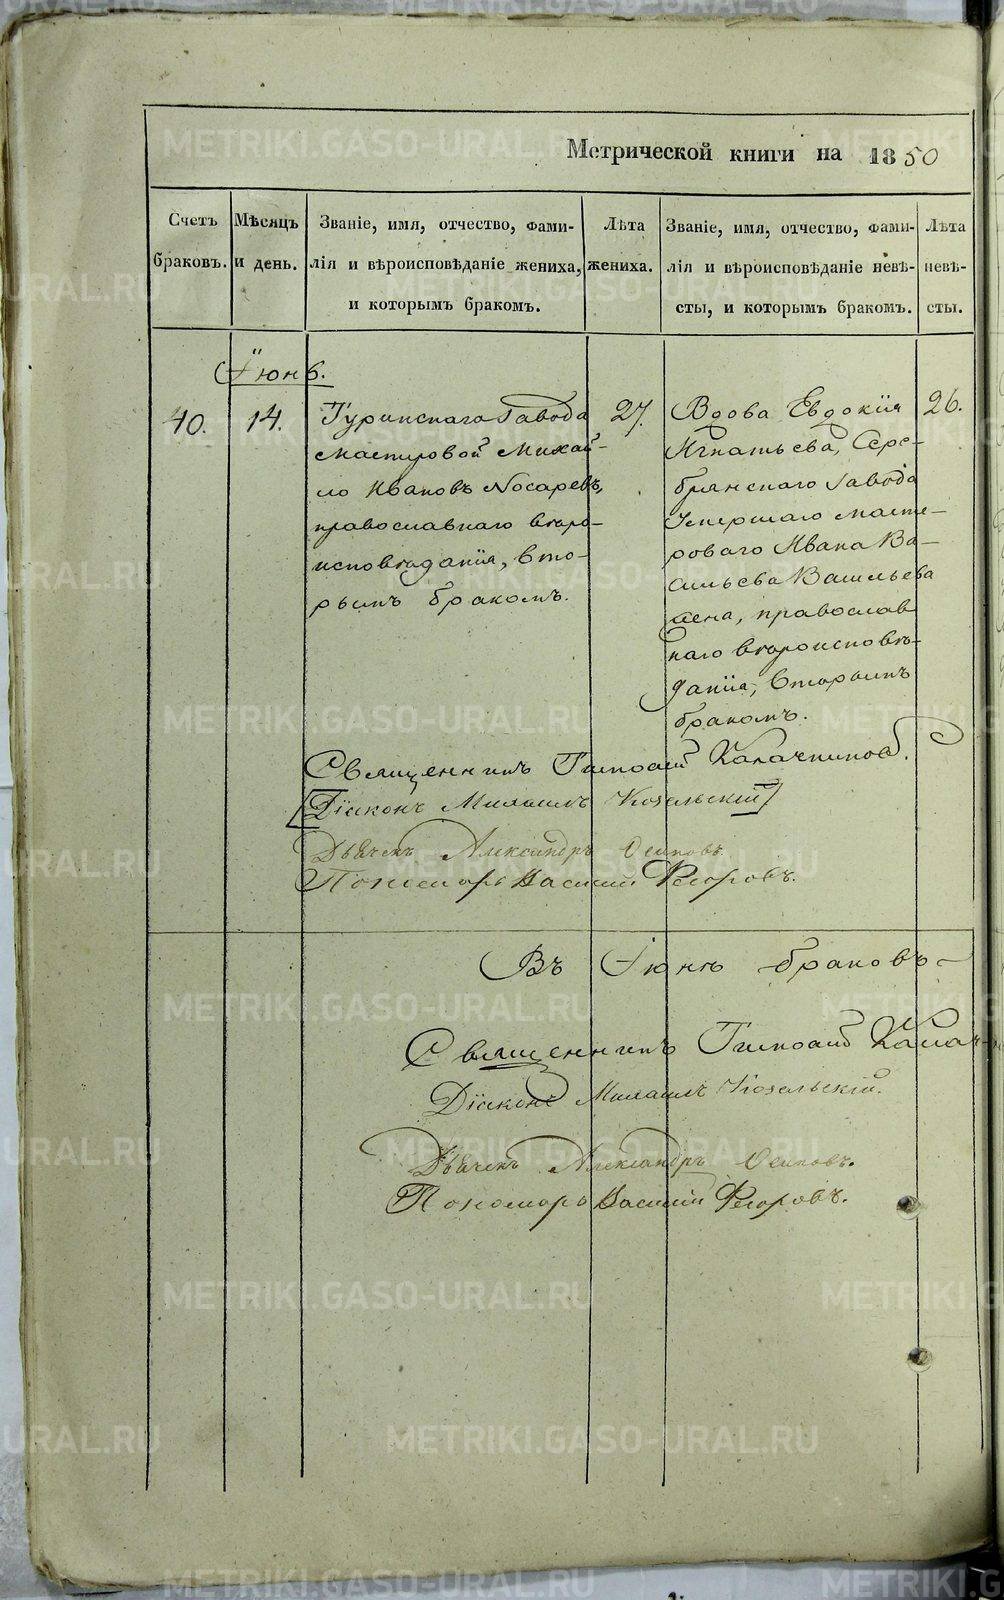 Метрической книги на 1850
Счетъ браковъ.
Мѣсяцъ и день.
Званіе, имя, отчество, фами-
лія и вѣроисповѣданіе жениха,
и которымъ бракомъ.
Лѣта
жениха.
Званіе, имя, отчество, фами-
лія и вѣроисповѣданіе невѣ-
сты, и которымъ бракомъ.
Лѣта
невѣ-
сты.
Іюнь.
40.
14.
Туринскаго завода
мастеровой Михай-
ло Ивановъ Носаревъ,
православнаго вѣро-
исповѣданія, вто-
рымъ бракомъ.
27.
Вдова Евдокія
Игнатьева, Сере-
брянскаго завода
умершаго масте-
роваго Ивана Ва-
сильева Васильева
жена, православ
наго вѣроисповѣ-
данія, вторымъ
бракомъ.
26.
Священникъ Калачниковъ.
Діаконъ Михаилъ Козельскій
Дьячекъ Александръ Осиповъ
Пономарь Василій Федоровъ.
Въ Іюнѣ браковъ
Священникъ
Діаконъ Михаилъ Козельскій.
Дьячекъ Александръ Осиповъ.
Пономарь Василій Федоровъ.
METRIKI.GASO-URAL.RU